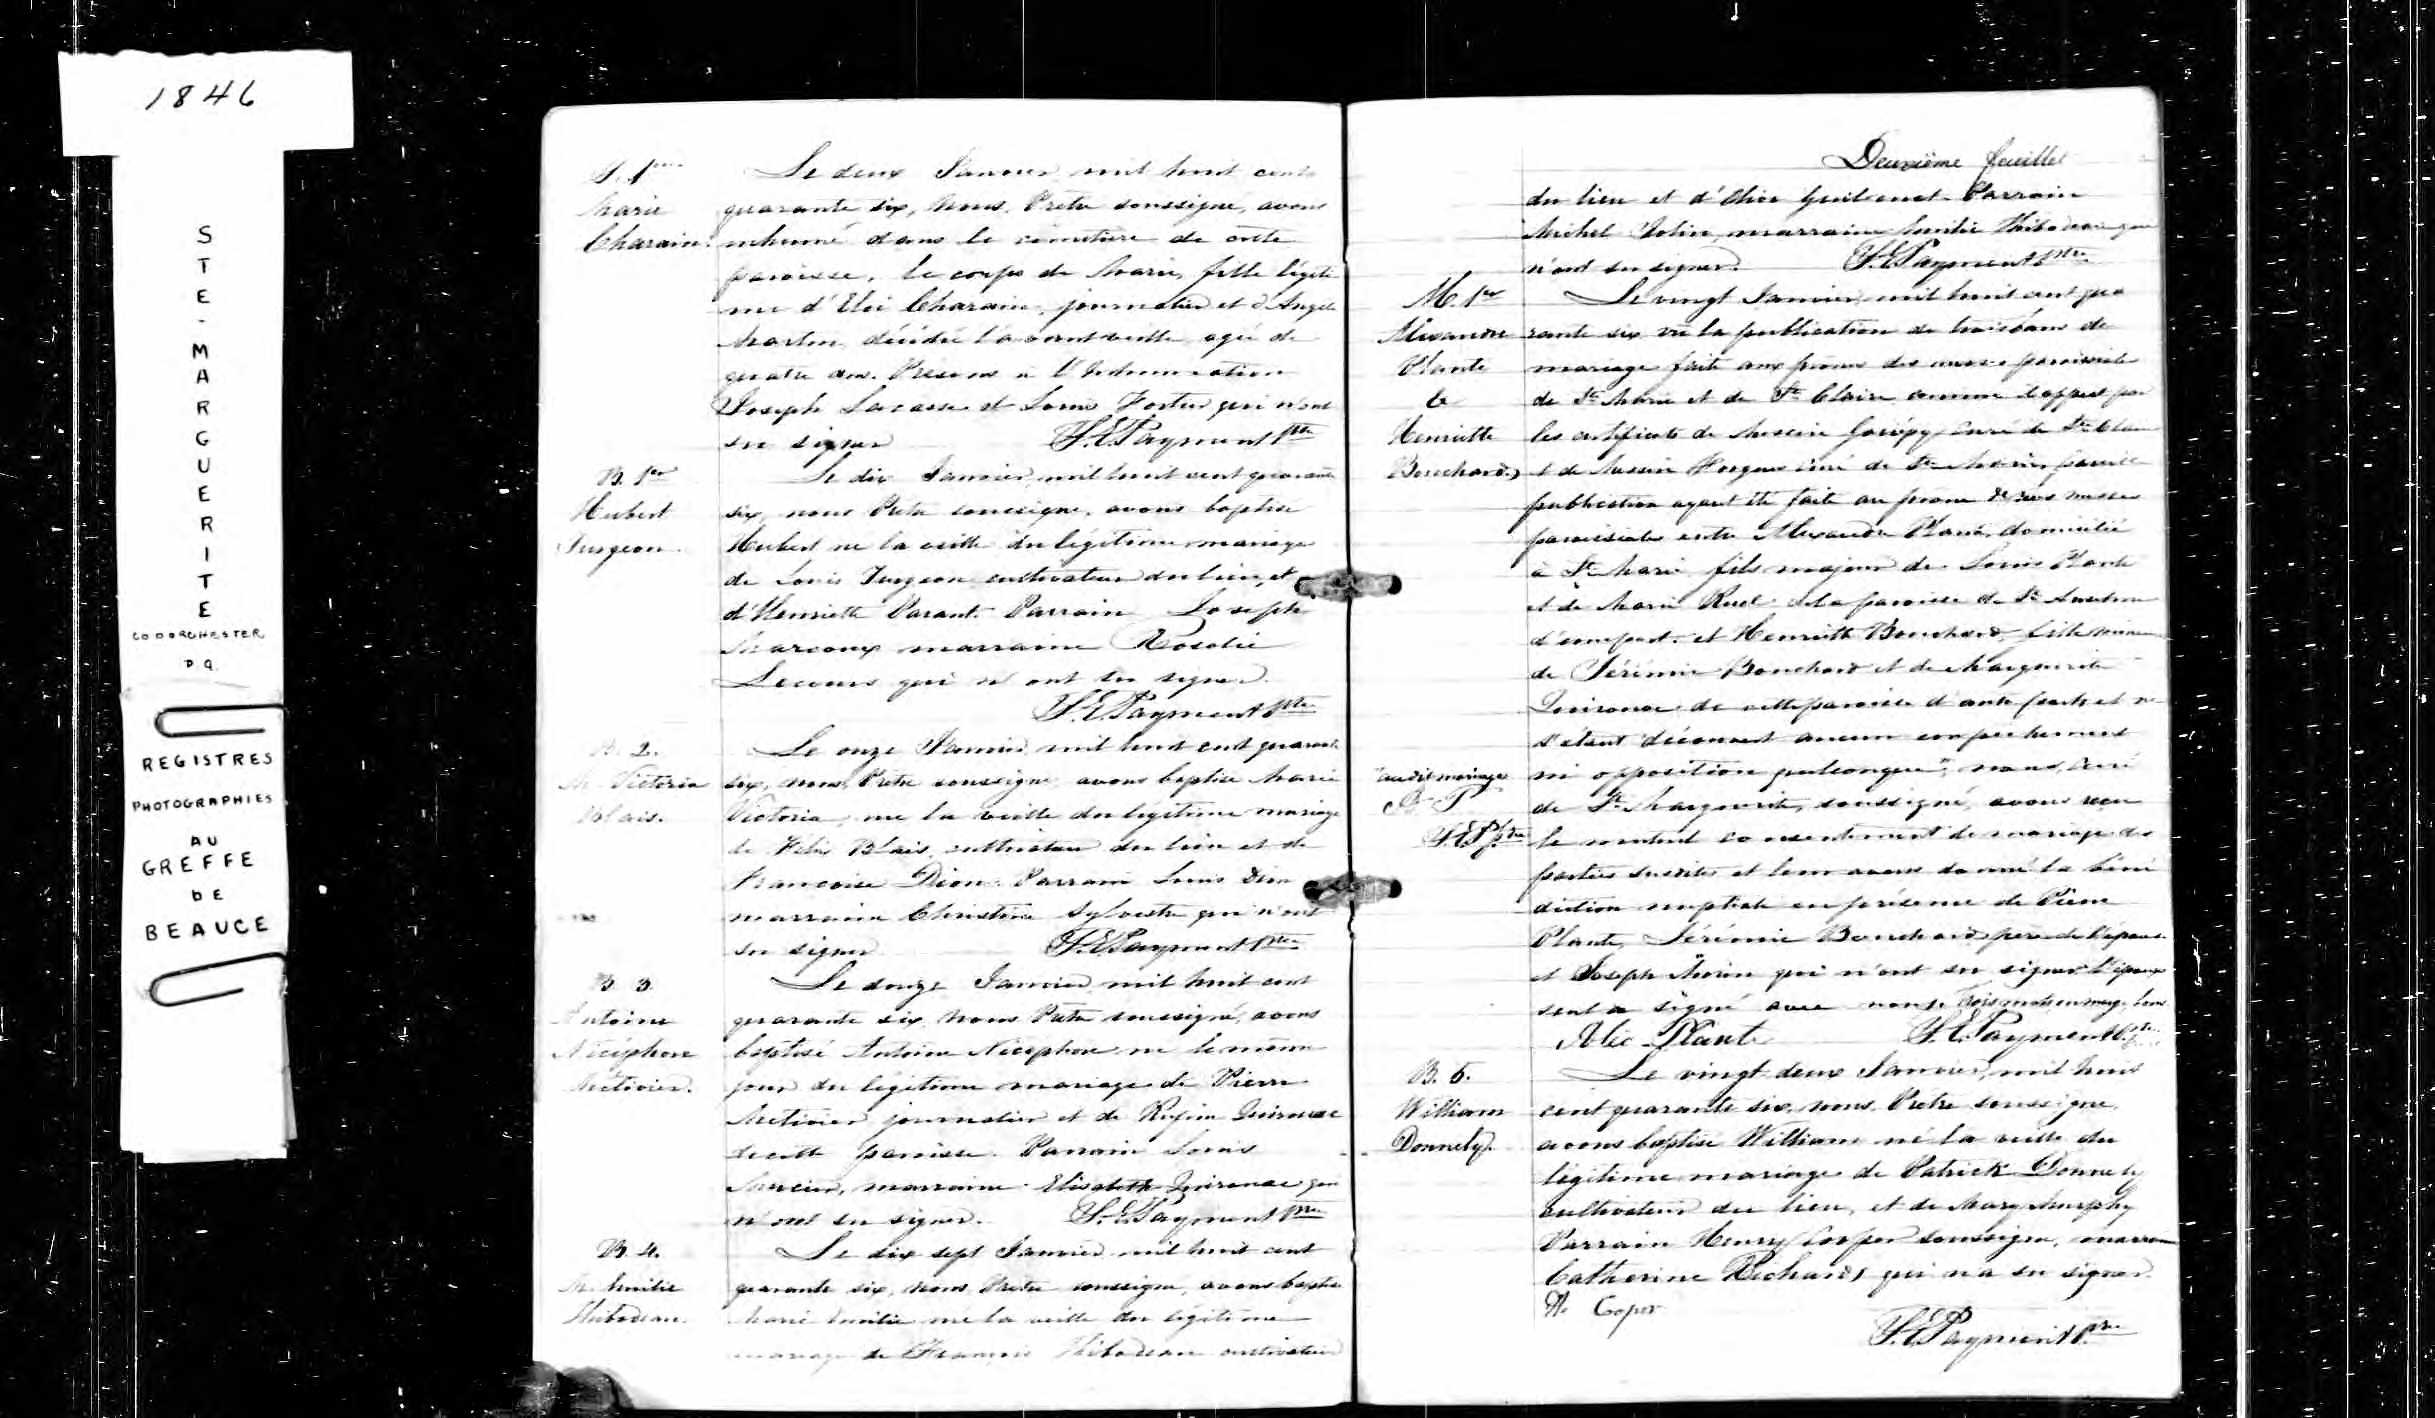 1846
STE-MARGUERITE
CO DORCHESTER
P.Q.
REGISTRES
PHOTOGRAPHIES
AU
GREFFE
DE
BEAUCE
S. 1ère
Marie
Charain.
Le deux Janvier mil huit cent
quarante six, Nous, Prêtre soussigné, avons
inhumé dans le cimetière de cette
paroisse, le corps de Marie, fille légiti
me d'Eloi Charain, journalier et d'Angèle
décédée l'avant veille agée de
quatre ans. Présens à l'Inhumation
Joseph Lacasse et Louis Fortier qui n'ont
su signer J.E.Payment Ptre
B. 1er
Hubert
Turgeon.
Le dix Janvier, mil huit cent quarante
six, nous Prêtre soussigné, avons baptisé
Hubert né la veille du légitime mariage
de Louis Turgeon cultivateur du lieu, et
d'Henriette Parant. Parrain Joseph
Marcoux marraine Rosalie
Lecours qui n'ont su signer.
J.E.Payment Ptre
B. 2.
M. Victoria
Blais.
Le onze Janvier mil huit cent quarante
six, nous, Prêtre soussigné, avons baptisé Marie
Victoria, née la veille du légitime mariage
de Felix Blais, cultivateur du lieu et de
Francoise Dion. Parrain Louis Dion
marraine Christine Sylvestre qui n'ont
su signer J.E.Payment Ptre
B. 3.
Antoine
Nicéphore
Métivier.
Le douze Janvier mil huit cent
quarante six, Nous Prêtre soussigné, avons
baptisé Antoine Nicéphore né le même
jour du légitime mariage de Pierre
Métivier journalier et de
de cette paroisse. Parrain Louis
marraine Elisabeth qui
n'ont su signer. J.E.Payment Ptre
B. 4.
M. Emilie
Thibodeau.
Le dix sept Janvier mil huit cent
quarante six, nous, Prêtre soussigné, avons baptisé
Marie Emilie née la veille du légitime
mariage de François Thibodeau cultivateur
Deuxième feuillet
du lieu et d' Parrain
Michel marraine Emilie Thibodeau qui
n'ont su signer. J.E.Payment Ptre
M. 1er
Alexandre
Plante
&
Henriette
Bouchard
Le vingt Janvier, mil huit cent qua
rante six vu la publication de trois bans de
mariage faite aux prônes des messes paroissiales
de Ste Marie et de Ste Claire comme il appert par
les certificats de Messire curé de Ste Claire
et de Messire curé de Ste Marie, pareille
publication ayant été faite au prône de nos messes
paroissiales entre Alexandre Plante, domicilié
à Ste Marie fils majeur de Louis Plante
et de Marie Ruel de la paroisse de St Anselme
d'une part, et Henriette Bouchard, fille mineure
de Jérémie Bouchard et de Marguerite
de cette paroisse d'autre part, et ne
s'étant découvert aucun empêchement
ni opposition quelconque", nous, Curé
"audit mariage
J.E.P. Ptre
de Ste Marguerite, soussigné, avons reçu
le mutuel consentement de mariage des
parties susdites et leur avons donné la béné
diction nuptiale en présence de Pierre
Plante, Jérémie Bouchard père de l'épouse
et Joseph Morin qui n'ont su signer. L'époux
seul a signé avec nous. Trois mots en marge bons
Alec Plante J.E.Payment Ptre
B. 6.
William
Donnely.
Le vingt deux Janvier, mil huit
cent quarante six, nous, Prêtre soussigné,
avons baptisé William né la veille du
légitime mariage de Patrick Donnely
cultivateur du lieu, et de Mary Murphy
Parrain Henry Cooper soussigné, marraine
Catherine Richards qui n'a su signer.
H. Coper
J.E.Payment Ptre